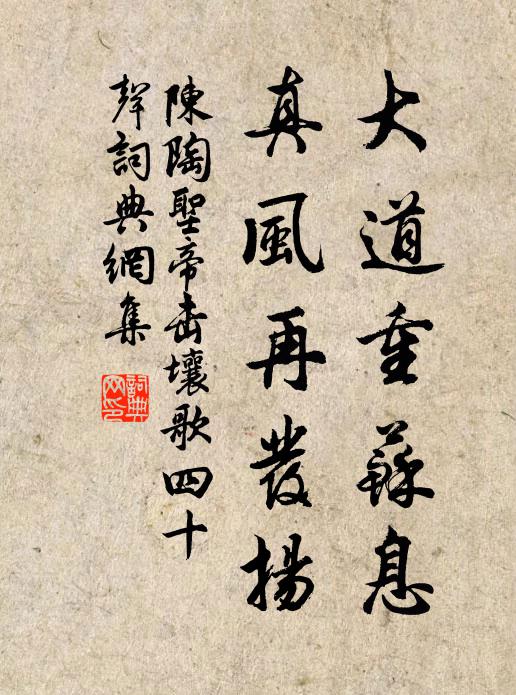 大道重蘇息
真風再發揚
陳陶聖帝击壤歌四十
聲詞典網集
詞典
网印